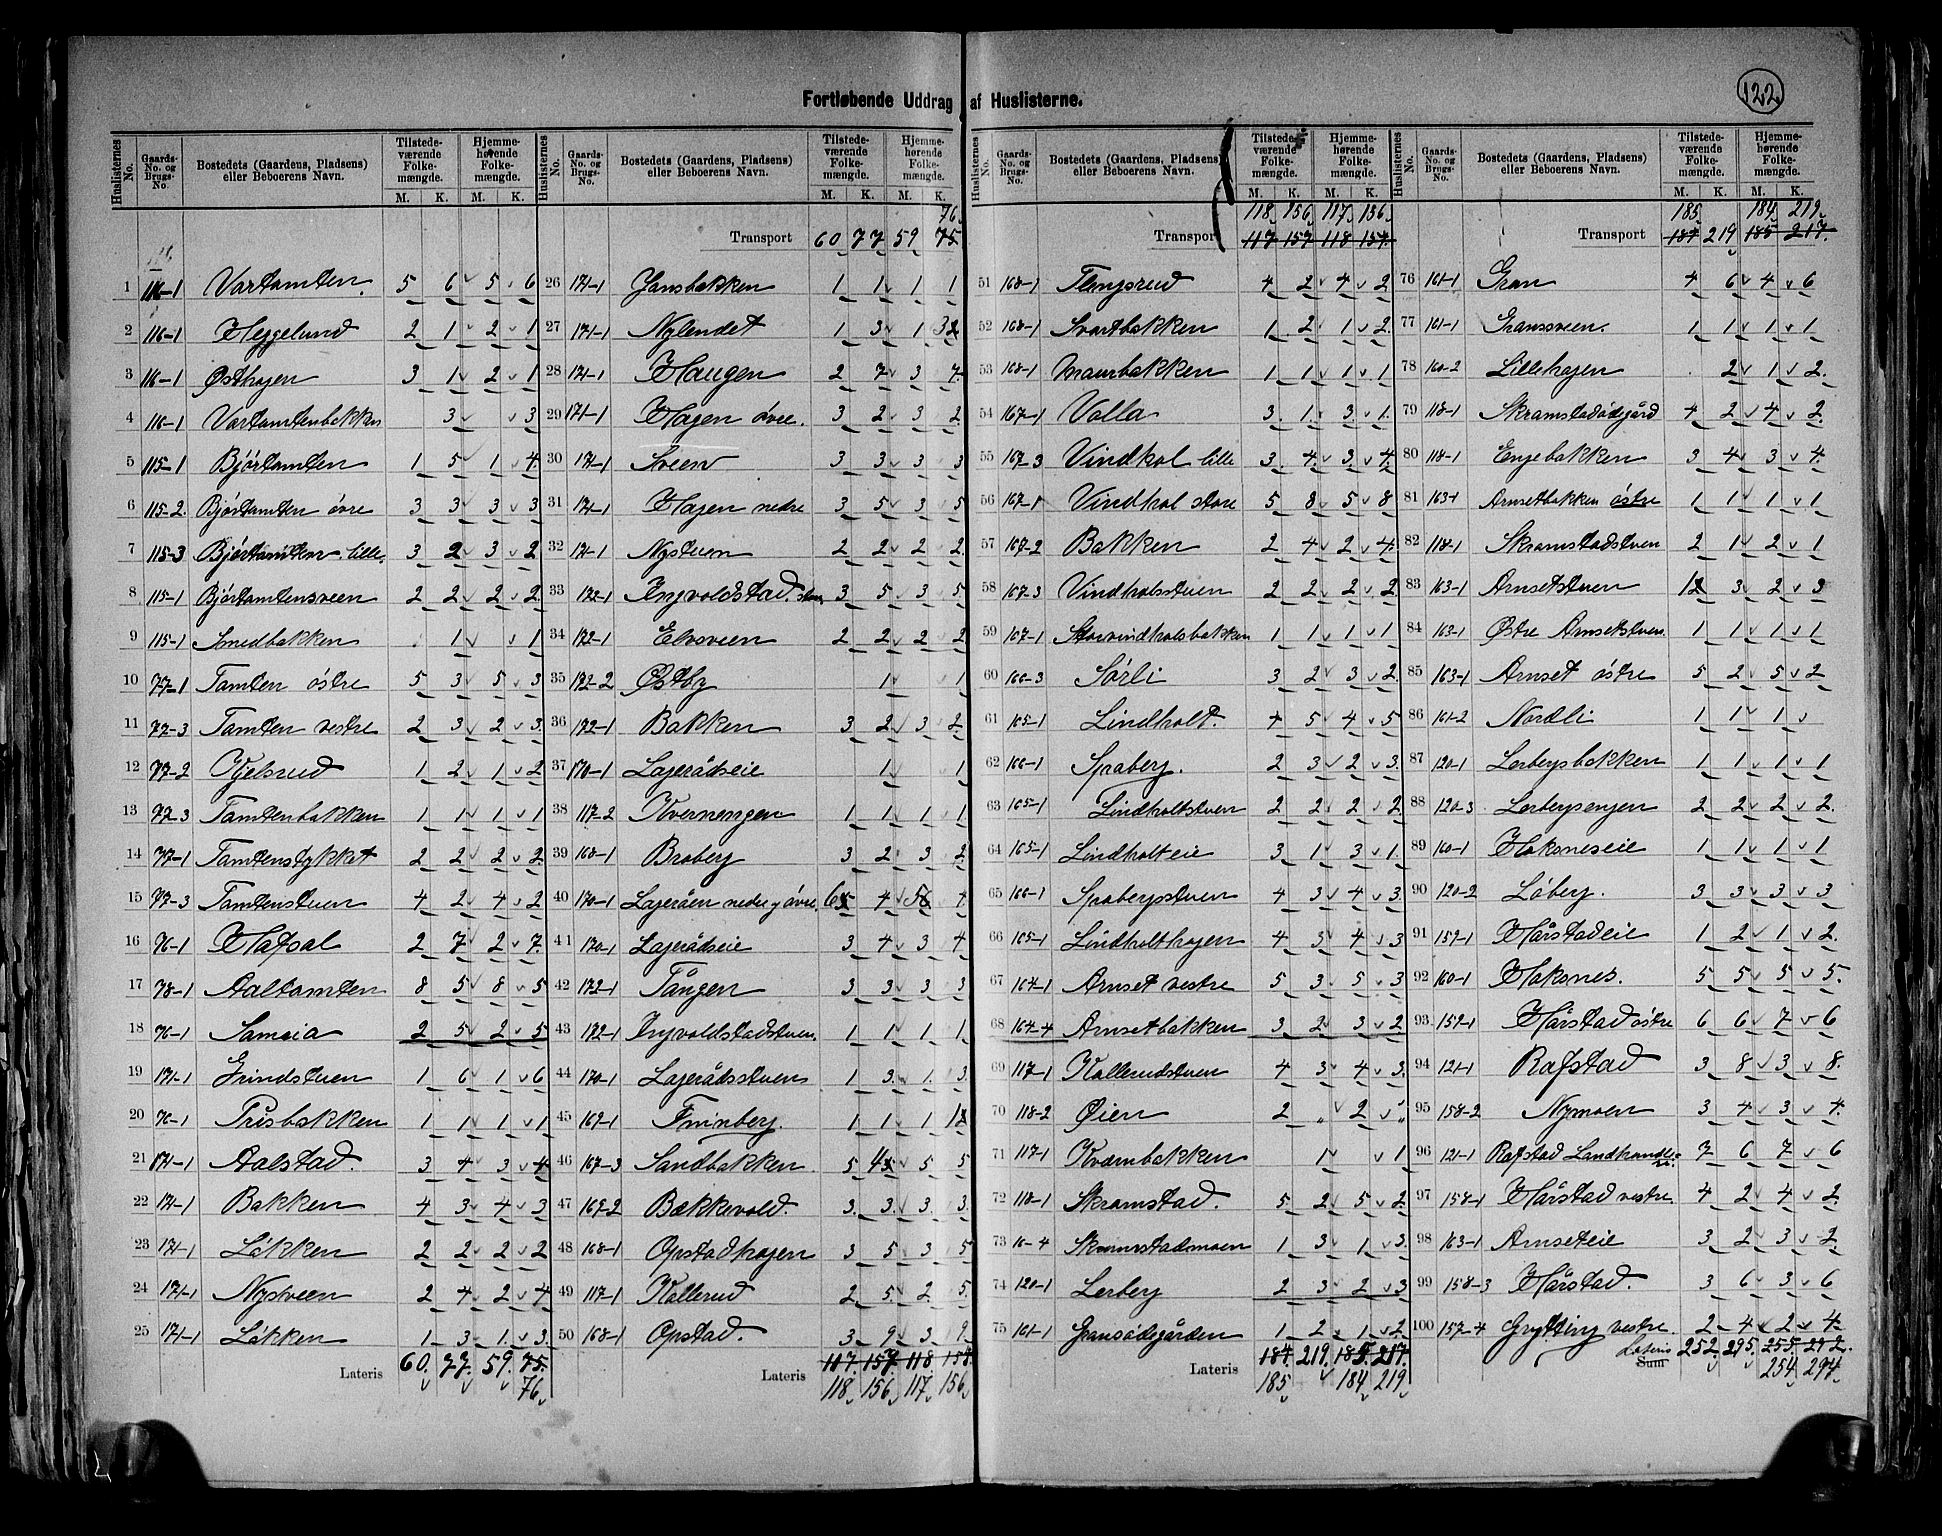 122
Fortløbende Uddrag af Huslisterne.
Huslisternes No. | Gaards-No. og Brugs-No. | Bostedets (Gaardens, Pladsens) eller Beboerens Navn. | Tilstedeværende Folkemængde. M. K. | Hjemmehørende Folkemængde. M. K.
1 116-1 Vartamten 5 6 5 6
2 116-1 Heggelund 2 1 2 1
3 116-1 Østhagen 3 1 2 1
4 116-1 Vartamtenbakken 3 3
5 115-1 Bjørtamten 1 5 1 4
6 115-2 Bjørtamten øvre 3 3 3 3
7 115-3 Bjørtamten lille 3 2 3 2
8 115-1 Bjørtamtensveen 2 2 2 2
9 115-1 Smedbakken 1 1
10 77-1 Tamten østre 5 3 5 3
11 77-3 Tamten vestre 2 3 2 3
12 77-2 Kjelsrud 1 2 1 2
13 77-3 Tamtenbakken 1 1 1 1
14 77-1 Tamtenstykket 2 2 2 2
15 77-3 Tamtenstuen 4 2 4 2
16 76-1 Hafsal 2 7 2 7
17 78-1 Aaltamten 8 5 8 5
18 76-1 Sameia 2 5 2 5
19 171-1 Grindstuen 1 6 1 6
20 76-1 Prisbakken 1 1 1 1
21 171-1 Aalstad 3 4 3 4
22 171-1 Bakken 4 3 4 3
23 171-1 Løkken 2 2 2 2
24 171-1 Nysveen 2 4 2 4
25 171-1 Løkken 1 3 1 3
Lateris 60 77 59 75
76
76
Transport 60 77 59 75
26 171-1 Jansbakken 1 1 1 1
27 171-1 Nylendet 1 3 1 32
28 171-1 Haugen 2 7 3 7
29 171-1 Hagen øvre 3 2 3 2
30 171-1 Sveen 3 3 3 3
31 171-1 Hagen nedre 3 5 3 5
32 171-1 Nystuen 2 2 2 2
33 172-1 Ingvoldstad store 3 5 3 5
34 172-1 Elvsveen 2 2 2 2
35 172-2 Østby 1 1
36 172-1 Bakken 3 2 3 2
37 170-1 Lajerådseie 1 1
38 117-2 Kvernengen 1 1 1 1
39 168-1 Broberg 3 2 3 2
40 170-1 Lajeråen nedre og øvre 65 4 56 4
41 170-1 Lajerådseie 3 4 3 4
42 172-1 Tången 3 3 3 3
43 172-1 Ingvoldstadstuen 1 1 1 1
44 170-1 Lajerådsstuen 1 3 1 3
45 169-1 Finnberg 1 1 1 1
46 167-3 Sandbakken 5 4 5 5
47 167-2 Bækkevold 3 3 3 3
48 168-1 Opstadhagen 3 5 3 5
49 117-1 Kollerud 2 5 2 5
50 168-1 Opstad 3 9 3 9
Lateris 117 157 118 158
118 156 117 156
118 156 117 156
Transport 117 157 118 157
51 168-1 Tengsrud 4 2 4 2
52 168-1 Svartbakken 1 2 1 2
53 168-1 Maurbakken 1 1 1 1
54 167-1 Volla 3 1 3 1
55 167-3 Vindhol lille 3 4 3 4
56 167-1 Vindhol store 5 8 5 8
57 167-2 Bakken 2 4 2 4
58 167-3 Vindholsstuen 2 2 2 2
59 167-1 Storvindholsbakken 1 1 1 1
60 166-3 Sørli 3 2 3 2
61 165-1 Lindholt 4 5 4 5
62 166-1 Spaberg 2 3 2 3
63 165-1 Lindholtstuen 2 2 2 2
64 165-1 Lindholteie 3 1 3 1
65 166-1 Spabergsstuen 4 3 4 3
66 165-1 Lindholthagen 4 3 4 3
67 164-1 Arnset vestre 5 3 5 3
68 164-4 Arnsetbakken 3 2 3 2
69 117-1 Kollerudstuen 4 3 4 3
70 118-2 Øien 2 " 2 "
71 117-1 Kværnbakken 1 1
72 118-1 Skramstad 5 2 5 2
73 Skramstadmoen 1 3 1 3
74 120-1 Lerberg 2 3 2 3
75 161-1 Gransødegården 1 2 1 2
Lateris 184 219 185 217
185 184 219
185 184 219
Transport 184 219 185 217
76 161-1 Gran 4 6 4 6
77 161-1 Granssveen 1 1 1 1
78 160-2 Lillehagen 2 1 2
79 118-1 Skramstadødegård 4 2 4 2
80 118-1 Engebakken 3 4 3 4
81 163-1 Arnsetbakken østre 1 1 1 1
82 118-1 Skramstadstuen 2 1 2 1
83 163-1 Arnsetstuen 12 3 2 3
84 163-1 Østre Arnsetstuen 1 1 1 1
85 163-1 Arnset østre 5 2 5 2
86 161-2 Nordli 1 1 1
87 120-1 Lerbergsbakken 1 1 1 1
88 120-3 Lerbergsengen 2 2 2 2
89 160-1 Hoksneseie 1 1 1 1
90 120-2 Løberg 3 3 3 3
91 159-1 Hårstadeie 1 2 1 2
92 160-1 Hoksnes 5 5 5 5
93 159-1 Hårstad østre 6 6 7 6
94 121-1 Rafstad 3 8 3 8
95 158-2 Nymoen 3 4 3 4
96 121-1 Rafstad Landhandleri 7 6 7 6
97 158-1 Hårstad vestre 4 2 4 2
98 163-1 Arnseteie 3 2 3 2
99 158-3 Hårstad 3 6 3 6
100 157-4 Grytting vestre 2 4 2 4
Lateris Sum 252 295 255 292
254 294